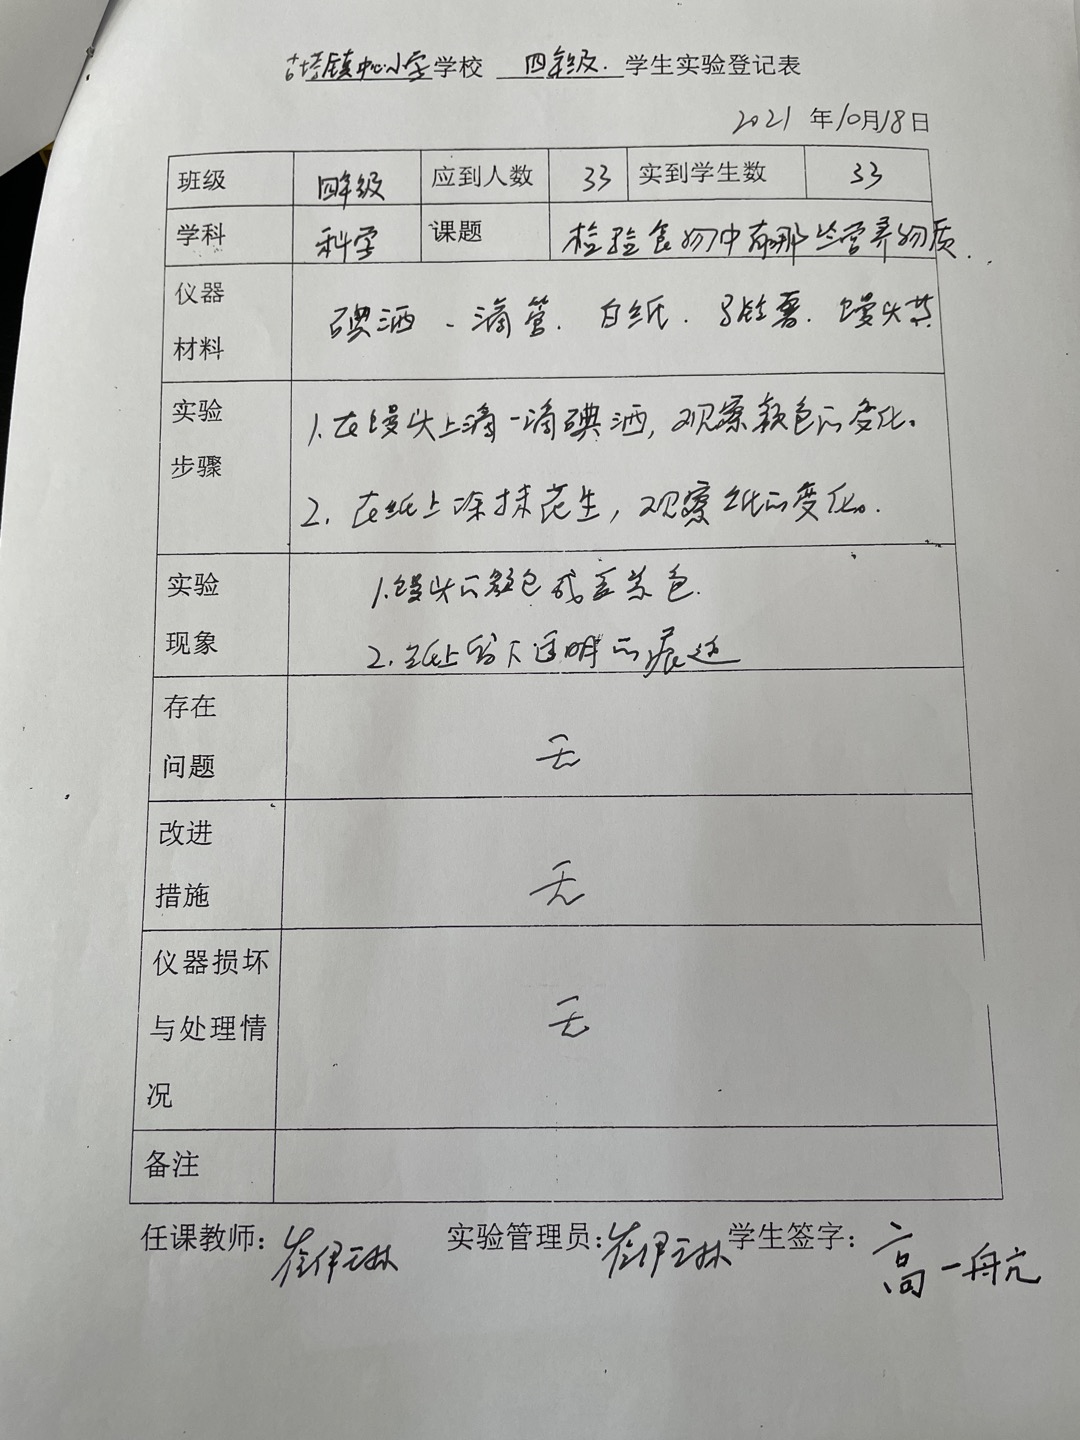 古塔镇中心小学学校 四年级. 学生实验登记表
2021 年10月18日
班级 四年级 应到人数 33 实到学生数 33
学科 科学 课题 检验食物中有哪些营养物质.
仪器
材料
碘酒、滴管. 白纸. 马铃薯. 馒头等
实验
步骤
1.在馒头上滴一滴碘酒,观察颜色的变化。
2. 在纸上涂抹花生,观察纸的变化。
实验
现象
1.馒头的颜色成蓝紫色.
2.纸上留下透明的痕迹
存在
问题
无
改进
措施
无
仪器损坏
与处理情
况
无
备注
任课教师:崔伊琳 实验管理员:崔伊琳 学生签字:高一航